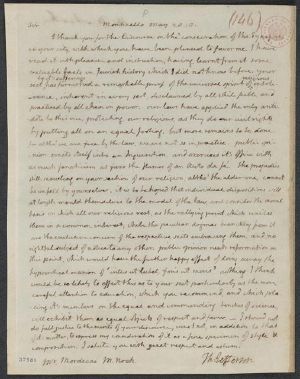 Sir Monticello May 28. 18.
I thank you for the Discourse on the consecration of the Synagogue
in your city, with which you have been pleased to favor me. I have
read it with pleasure and instruction, having learnt from it some
valuable facts in Jewish history which I did not know before. your
sect by it's sufferings has furnished a remarkable proof of the universal spirit of religious
intolerance, inherent in every sect, disclaimed by all while feeble, and
practised by all when in power. our laws have applied the only anti-
dote to this vice, protecting our religious, as they do our civil rights
by putting all on an equal footing. but more remains to be done.
for altho' we are free by the law, we are not so in practice. public opi-
nion erects itself into an Inquisition, and exercises it's office with
as much fanaticism as fans the flames of an Auto da fe. The prejudice
still scowling on your section of our religion, altho' the elder one, cannot
be unfelt by yourselves. it is to be hoped that individual dispositions will
at length mould themselves to the model of the law, and consider the moral
basis on which all our religions rest, as the rallying point which unites
them in a common interest; while the peculiar dogmas branching from it
are the exclusive concern of the respective sects embracing them, and no
rightful subject of notice to any other. public opinion needs reformation on
this point, which would have the further happy effect of doing away the
hypocritical maxim of 'intus ut lubet, foris ut moris'. nothing I think
would be so likely to effect this as to your sect particularly as the more
careful attention to education, which you recommend, and which pla-
cing it's members on the equal and commanding benches of science,
will exhibit them as equal objects of respect and favor. I should not
do full justice to the merits of your discourse, were I not, in addition to that
of it's matter, to express my consideration of it as a fine specimen of style &
composition. I salute you with great respect and esteem.
Th: Jefferson
Mr. Mordecai M. Noah.
37981
(146)